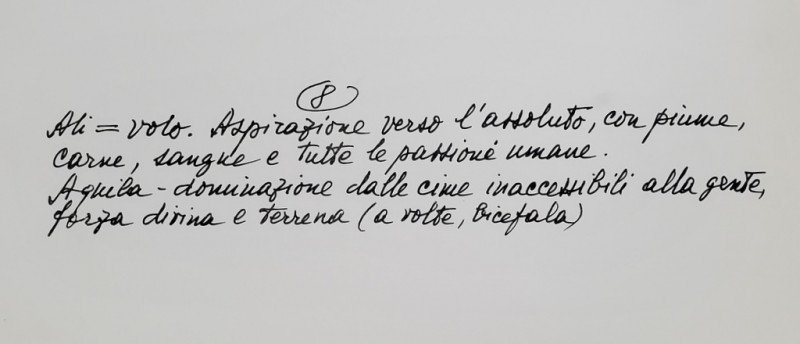 8
Ali = volo. Aspirazione verso l'assoluto, con piume,
carne, sangue e tutte le passioni umane.
Aquila - dominazione dalle cime inaccessibili alla gente,
forza divina e terrena (a volte, bicefala)